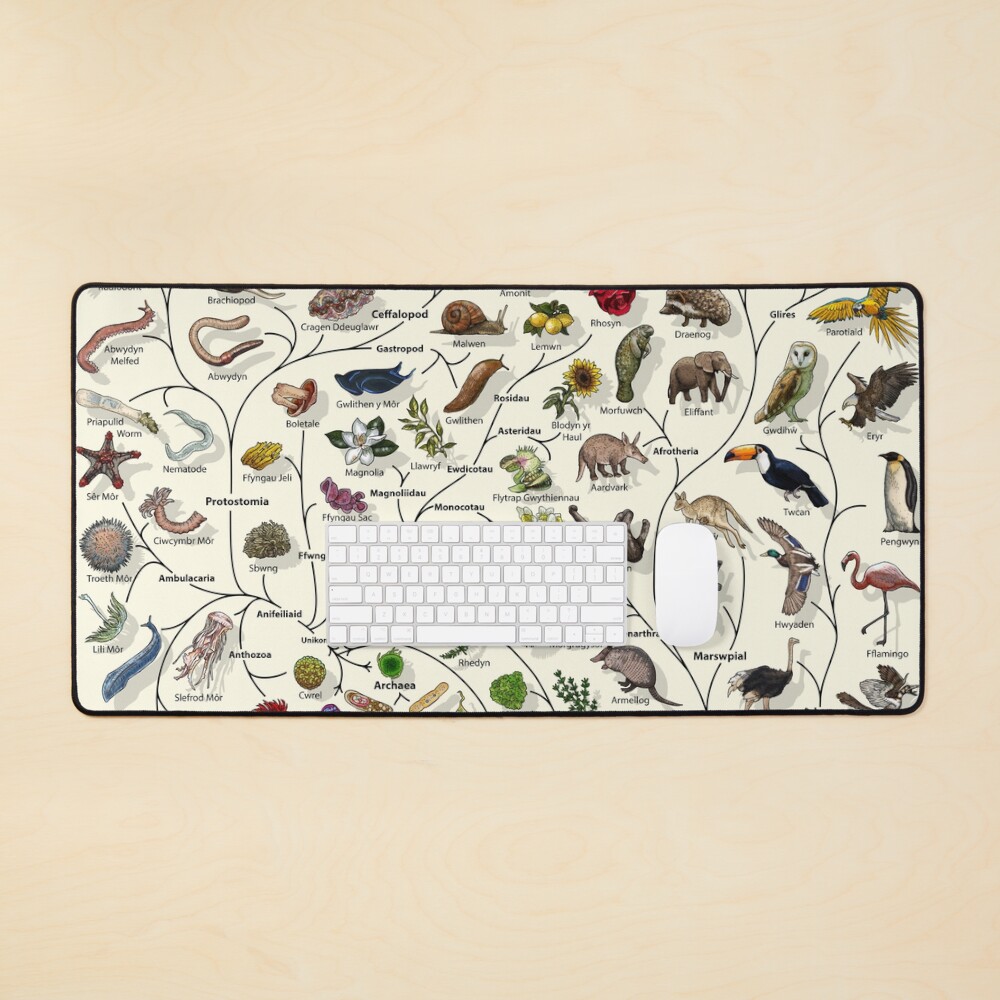 Brachiopod
Amonit
Cragen Ddeuglawr
Ceffalopod
Malwen
Lemwn
Rhosyn
Draenog
Glires
Parotiaid
Abwydyn
Melfed
Abwydyn
Gastropod
Gwlithen y Môr
Gwlithen
Rosidau
Morfuwch
Eliffant
Gwdihŵ
Eryr
Priapulid
Worm
Boletale
Asteridau
Blodyn yr
Haul
Nematode
Ffyngau Jeli
Magnolia
Llawryf
Ewdicotau
Afrotheria
Sêr Môr
Protostomia
Ffyngau Sac
Magnoliidau
Monocotau
Flytrap Gwythiennau
Aardvark
Twcan
Pengwyn
Ciwcymbr Môr
Troeth Môr
Sbwng
Ffwng
Ambulacaria
Anifeiliaid
Hwyaden
Lili Môr
Anthozoa
Unikon
Rhedyn
narthra
Marswpial
Fflamingo
Slefrod Môr
Cwrel
Archaea
Armeilog